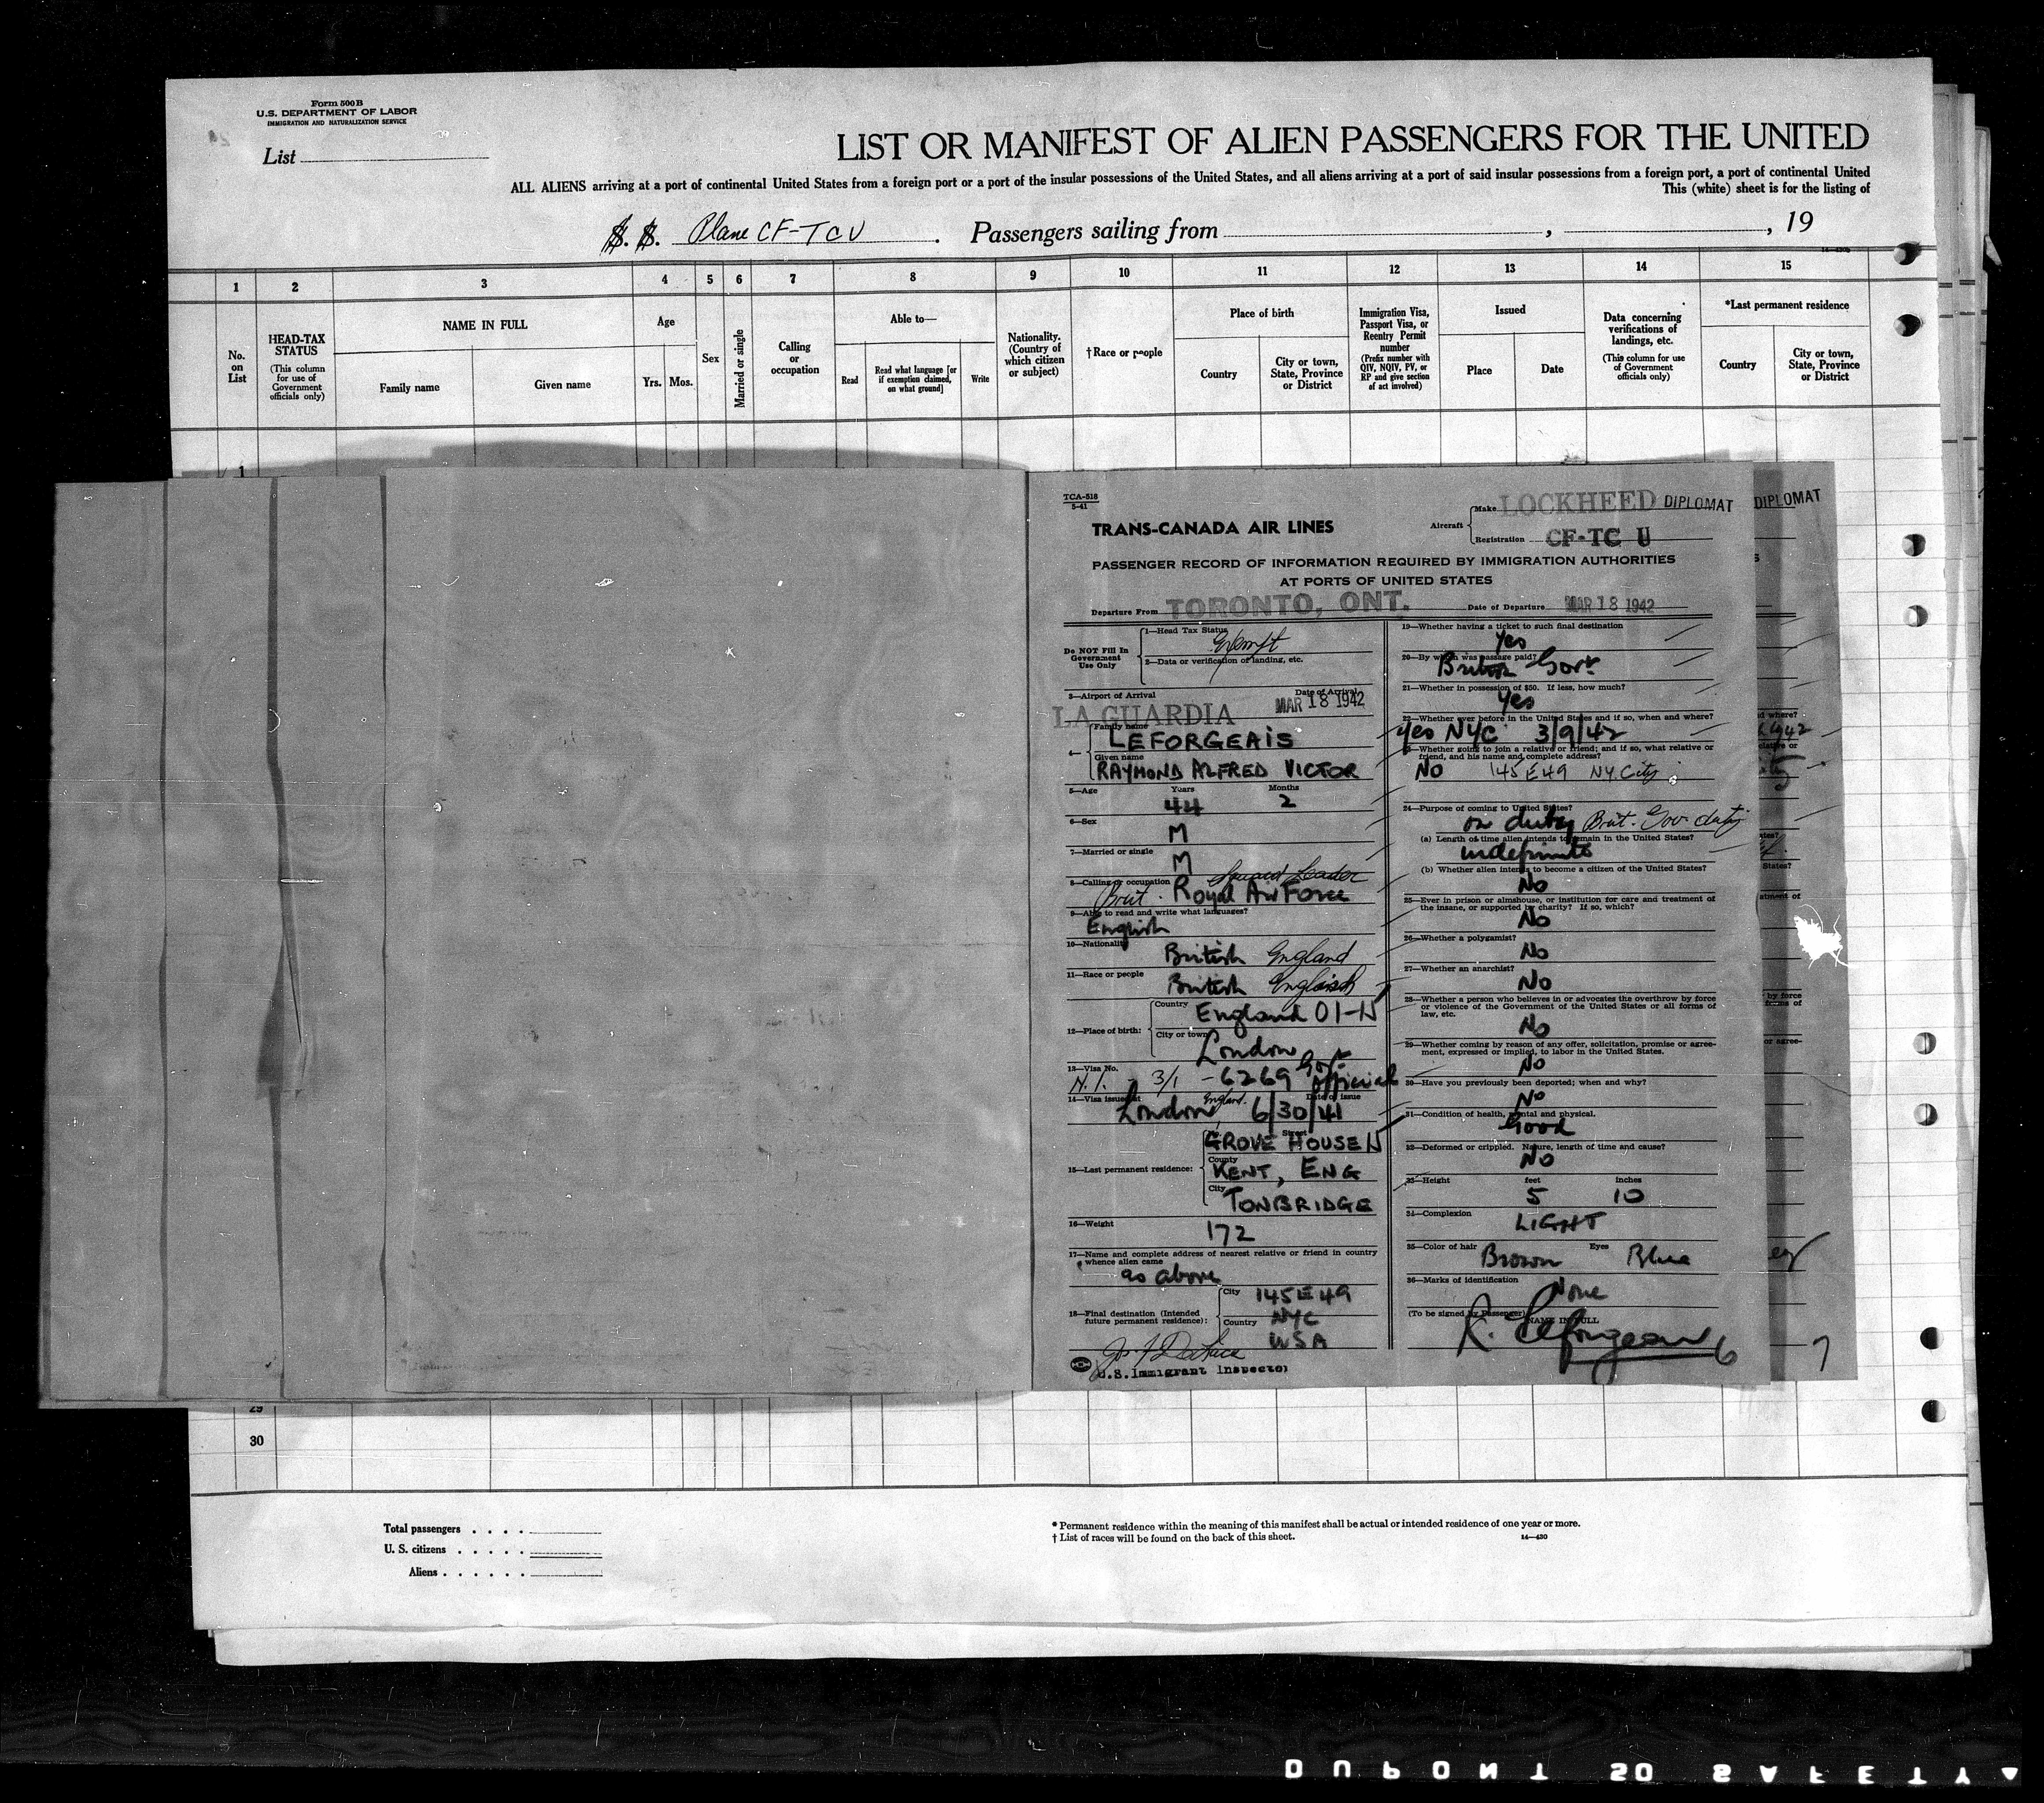 Form 500 B
U.S. DEPARTMENT OF LABOR
IMMIGRATION AND NATURALIZATION SERVICE
List
LIST OR MANIFEST OF ALIEN PASSENGERS FOR THE UNITED
ALL ALIENS arriving at a port of continental United States from a foreign port or a port of the insular possessions of the United States, and all aliens arriving at a port of said insular possessions from a foreign port, a port of continental United
This (white) sheet is for the listing of
S. S. Plane CF-TCU. Passengers sailing from , , 19
1 2 3 4 5 6 7 8 9 10 11 12 13 14 15
No. on List
HEAD-TAX STATUS
(This column for use of Government officials only)
NAME IN FULL
Family name
Given name
Age
Yrs. Mos.
Sex
Married or single
Calling or occupation
Able to—
Read
Read what language [or if exemption claimed, on what ground]
Write
Nationality. (Country of which citizen or subject)
†Race or people
Place of birth
Country
City or town, State, Province or District
Immigration Visa, Passport Visa, or Reentry Permit number
(Prefix number with QIV, NQIV, PV, or RP and give section of act involved)
Issued
Place
Date
Data concerning verifications of landings, etc.
(This column for use of Government officials only)
*Last permanent residence
Country
City or town, State, Province or District
1
TCA-518
5-41
TRANS-CANADA AIR LINES
Aircraft
Make LOCKHEED DIPLOMAT
DIPLOMAT
Registration CF-TC U
PASSENGER RECORD OF INFORMATION REQUIRED BY IMMIGRATION AUTHORITIES
AT PORTS OF UNITED STATES
Departure From TORONTO, ONT. Date of Departure MAR 18 1942
Do NOT Fill In Government Use Only
1—Head Tax Status Exempt
2—Data or verification of landing, etc.
3—Airport of Arrival Date of Arrival
LA GUARDIA MAR 18 1942
4—
Family name
LEFORGEAIS
Given name
RAYMOND ALFRED VICTOR
5—Age Years Months
44 2
6—Sex
M
7—Married or single
M
8—Calling or occupation Squad Leader
Brit. Royal Air Force
9—Able to read and write what languages?
English
10—Nationality
British England
11—Race or people
British English
12—Place of birth:
Country
England 01-N
City or town
London
13—Visa No. Gov't
N.I. 3/1 -6269 official
14—Visa issued at England. Date of Issue
London 6/30/41
15—Last permanent residence:
No. Street
GROVE HOUSE N
County
KENT, ENG
City
TONBRIDGE
16—Weight
172
17—Name and complete address of nearest relative or friend in country
whence alien came
as above
18—Final destination (Intended future permanent residence):
City 145 E 49
NYC
Country
USA
U.S. Immigrant Inspector
19—Whether having a ticket to such final destination
Yes
20—By whom was passage paid?
British Govt
21—Whether in possession of $50. If less, how much?
Yes
22—Whether ever before in the United States and if so, when and where?
Yes NYC 3/9/42
23—Whether going to join a relative or friend; and if so, what relative or
friend, and his name and complete address?
No 145 E 49 N.Y. City
24—Purpose of coming to United States?
on duty Brit. Gov. duty
(a) Length of time alien intends to remain in the United States?
indefinite
(b) Whether alien intends to become a citizen of the United States?
No
25—Ever in prison or almshouse, or institution for care and treatment of
the insane, or supported by charity? If so, which?
No
26—Whether a polygamist?
No
27—Whether an anarchist?
No
28—Whether a person who believes in or advocates the overthrow by force
or violence of the Government of the United States or all forms of
law, etc.
No
29—Whether coming by reason of any offer, solicitation, promise or agree-
ment, expressed or implied, to labor in the United States.
No
30—Have you previously been deported; when and why?
No
31—Condition of health, mental and physical.
Good
32—Deformed or crippled. Nature, length of time and cause?
No
33—Height feet inches
5 10
34—Complexion
LIGHT
35—Color of hair Brown Eyes Blue
36—Marks of identification
None
(To be signed by Passenger) NAME IN FULL
R. Leforgeais 6
7
29
30
Total passengers
U. S. citizens
Aliens
* Permanent residence within the meaning of this manifest shall be actual or intended residence of one year or more.
† List of races will be found on the back of this sheet.
14—430
DUPONT SO SAFETY